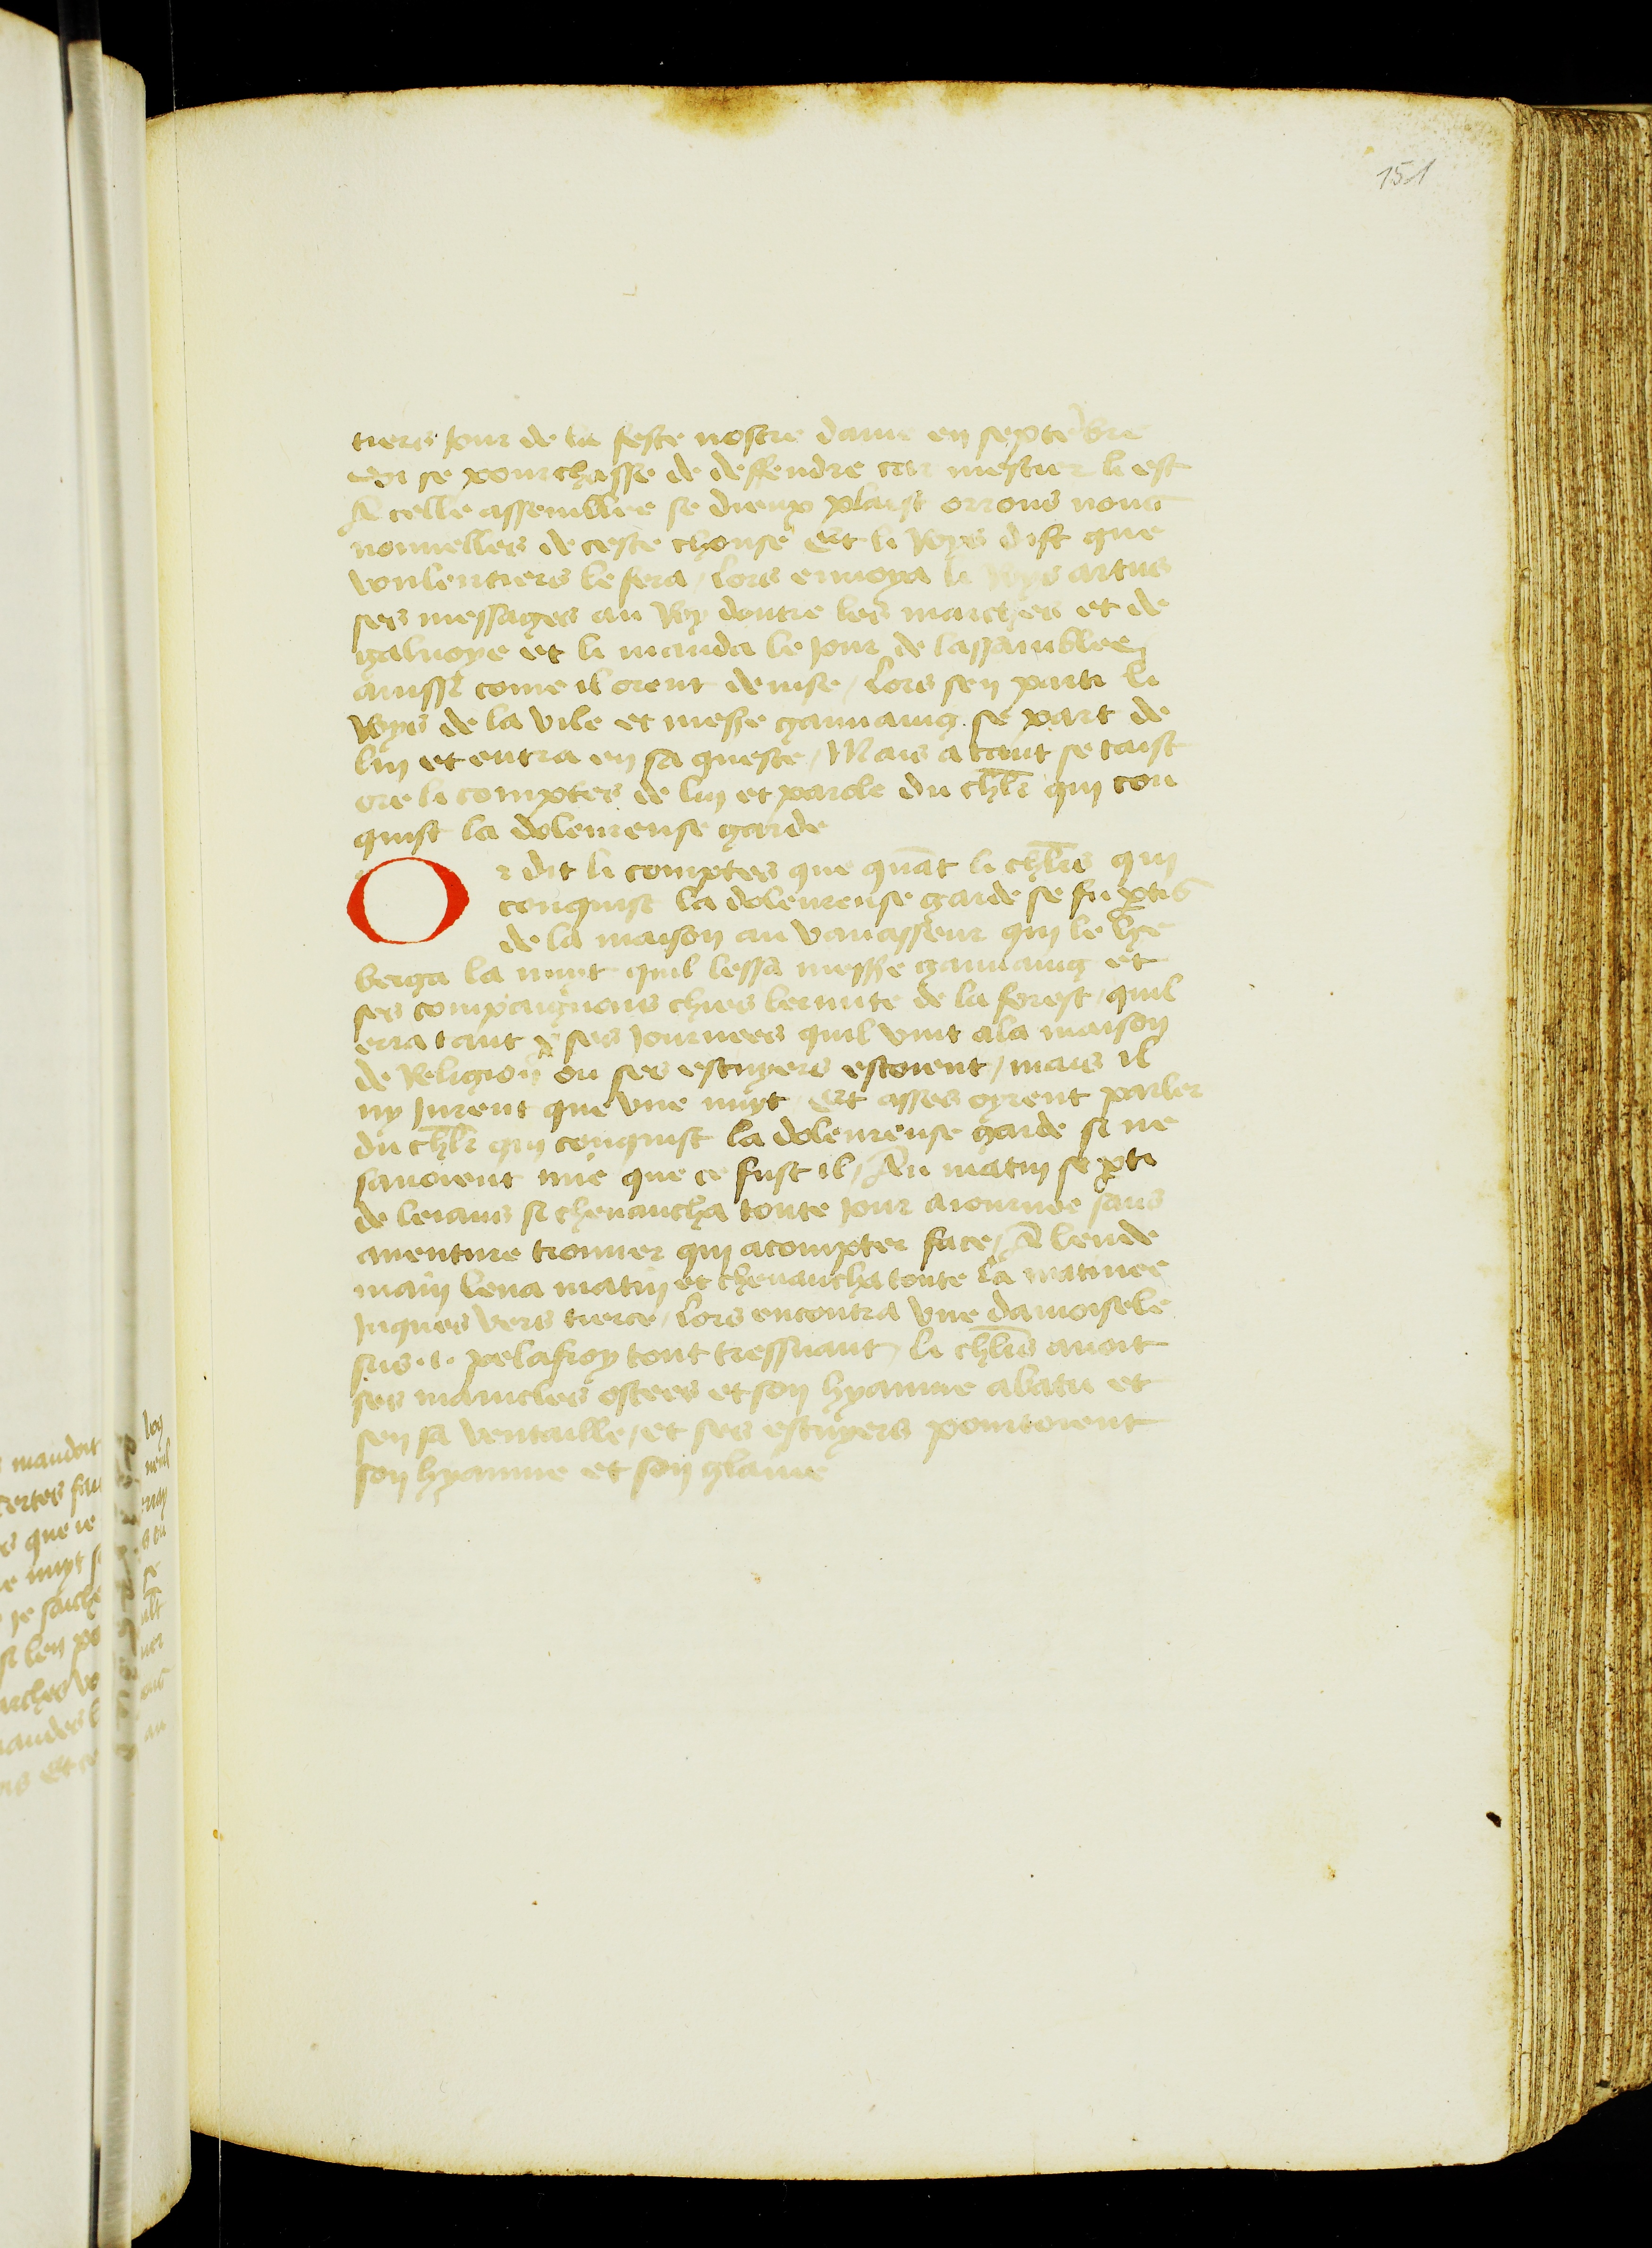 151
tiers jour de la feste nostre dame en septēbre
se pourchasse de deffendre car mestier li est
A celle assemblee se dieux plaist orrons nous
nouuelles de ceste chouse Et li Roys dist que
voulentiers le fera / Lors enuoya li Roys artus
ses messages au Roy doutre les marches et de
galuoye et li manda le jour de lassamblee
aussi come il orent deuise / Lors sen parti li
Roys de la vile et messe gauuaing se part de
luy et entra en sa queste / Mais a tant se taist
ore li comptes de luy et parole du chlr̄ qui con
quist la dolereuse garde
Or dit li comptes que quāt li chlr̄s qui
conquist la dolereuse garde se fu ptis
de la maison au vauasseur qui le her
berga la nuyt quil lessa messe gauuaing et
ses compaignons chies lermite de la forest / quil
erra tant p ses journees quil vint ala maison
de Religion ou ses escuyers estoient / mais il
ny jurent que vne nuyt Et asses oyrent parler
du chlr̄ qui conquist la dolereuse garde si ne
sauoient mie que ce fust il / Au matin se pti
de leians si cheuaucha toute jour aiournee sans
auenture trouuer qui acompter face / A lende
main leua matin et cheuaucha toute la matinee
juques vers tierce / Lors encontra vne damoisele
sus .i. pelafroy tout tressuant / li chlr̄s auoit
ses manicles ostees et son hyaume abatu et
sen sa ventaille / et ses escuyers pourtoient
son hyaume et son glaiue